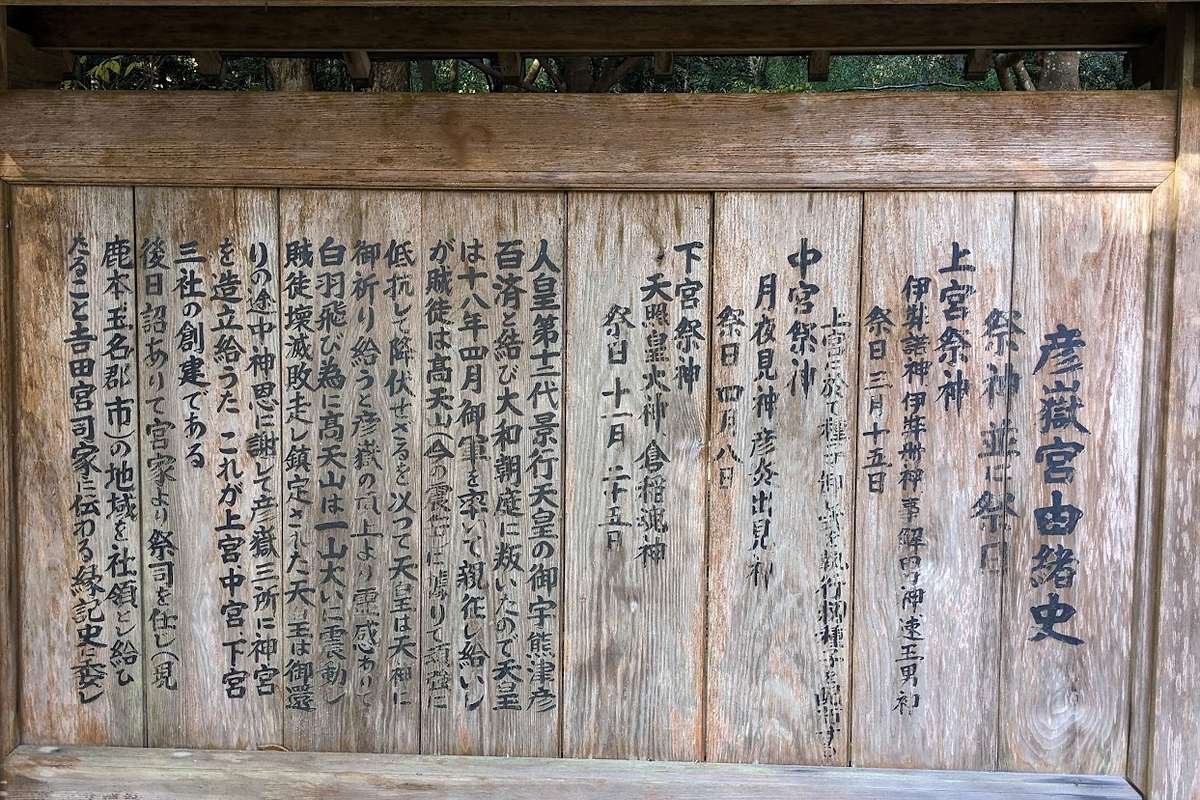 彦嶽宮由緒史
祭神並に祭日
上宮祭神
伊弉諾神伊弉册神事解男神速玉男神
祭日三月十五日
上宮に於て種子御
中宮祭神
月夜見神彦炎出見神
祭日四月八日
下宮祭神
天照皇大神倉稲魂神
祭日十一月二十五日
人皇第十二代景行天皇の御宇熊津彦
百済と結び大和朝庭に叛いたので天皇
は十八年四月御軍を率いて親征し給いし
が賊徒は高天山(今の震岳)に據りて頑強に
低抗して降伏せざるを以つて天皇は天神に
御祈り給うと彦嶽の頂上より霊感ありて
白羽飛び為に高天山は一山大いに震動し
賊徒壊滅敗走し鎮定された天皇は御還
りの途中神恩に謝して彦嶽三所に神宮
を造立給うた これが上宮中宮下宮
三社の創建である
後日詔ありて宮家より祭司を任し(現
鹿本玉名郡市)の地域を社領とし給ひ
たること吉田宮司家に伝わる縁記史に委し